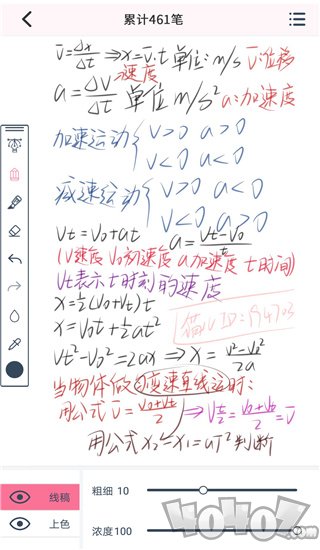 累计461笔
v̄=Δx/Δt ⇒x=v̄·t 单位:m/s v̄:位移
:速度
a=ΔV/Δt 单位 m/s² a:加速度
加速运动 { V>0 a>0
V<0 a<0
减速运动 { V>0 a<0
V<0 a>0
Vt=V0+at a=Vt-V0/t
(V速度 V0初速度 a加速度 t时间)
Vt表示t时刻的速度
x=½(V0+Vt)t
x=V0t+½at²
ID:194703
Vt²-V0²=2ax ⇒ x=V²-V0²/2a
当物体做匀变速直线运时:
用公式 v̄=V0+Vt/2 ⇒V t/2=V0+Vt/2=v̄
用公式x2-x1=aT²判断
线稿
粗细 10
上色
浓度100